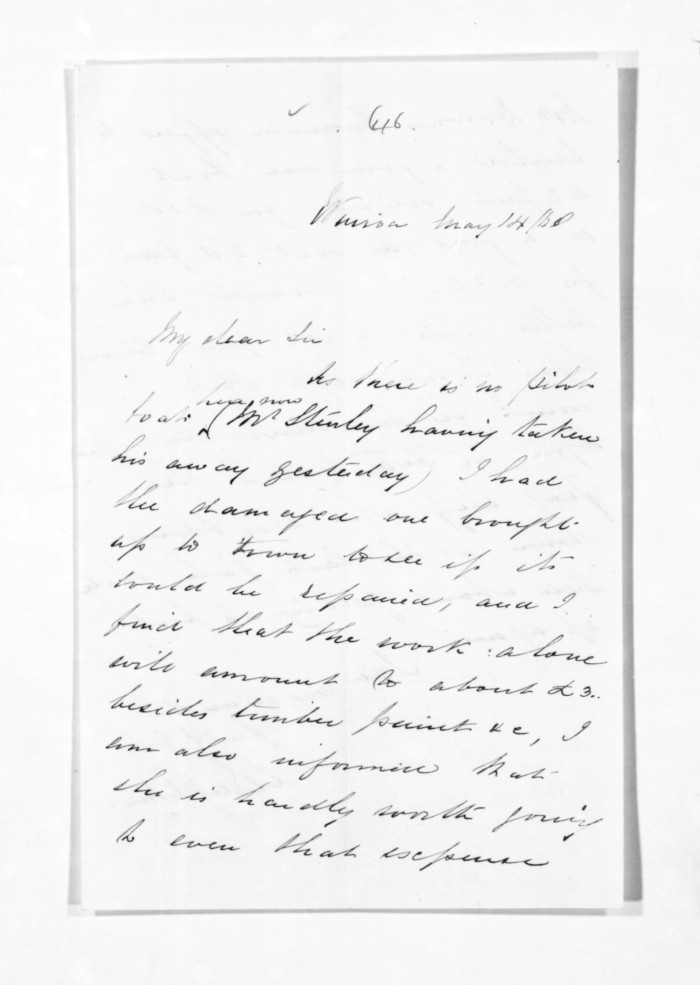 46.
Wairoa May 14/68
My dear Sir
As there is no pilot
here now
boat (Mr Sturley having taken
his away yesterday) I had
the damaged one brought
up to town to see if it
could be repaired, and I
find that the work alone
will amount to about £3..
besides timber paint &c, I
am also informed that
she is hardly worth going
to even that expense